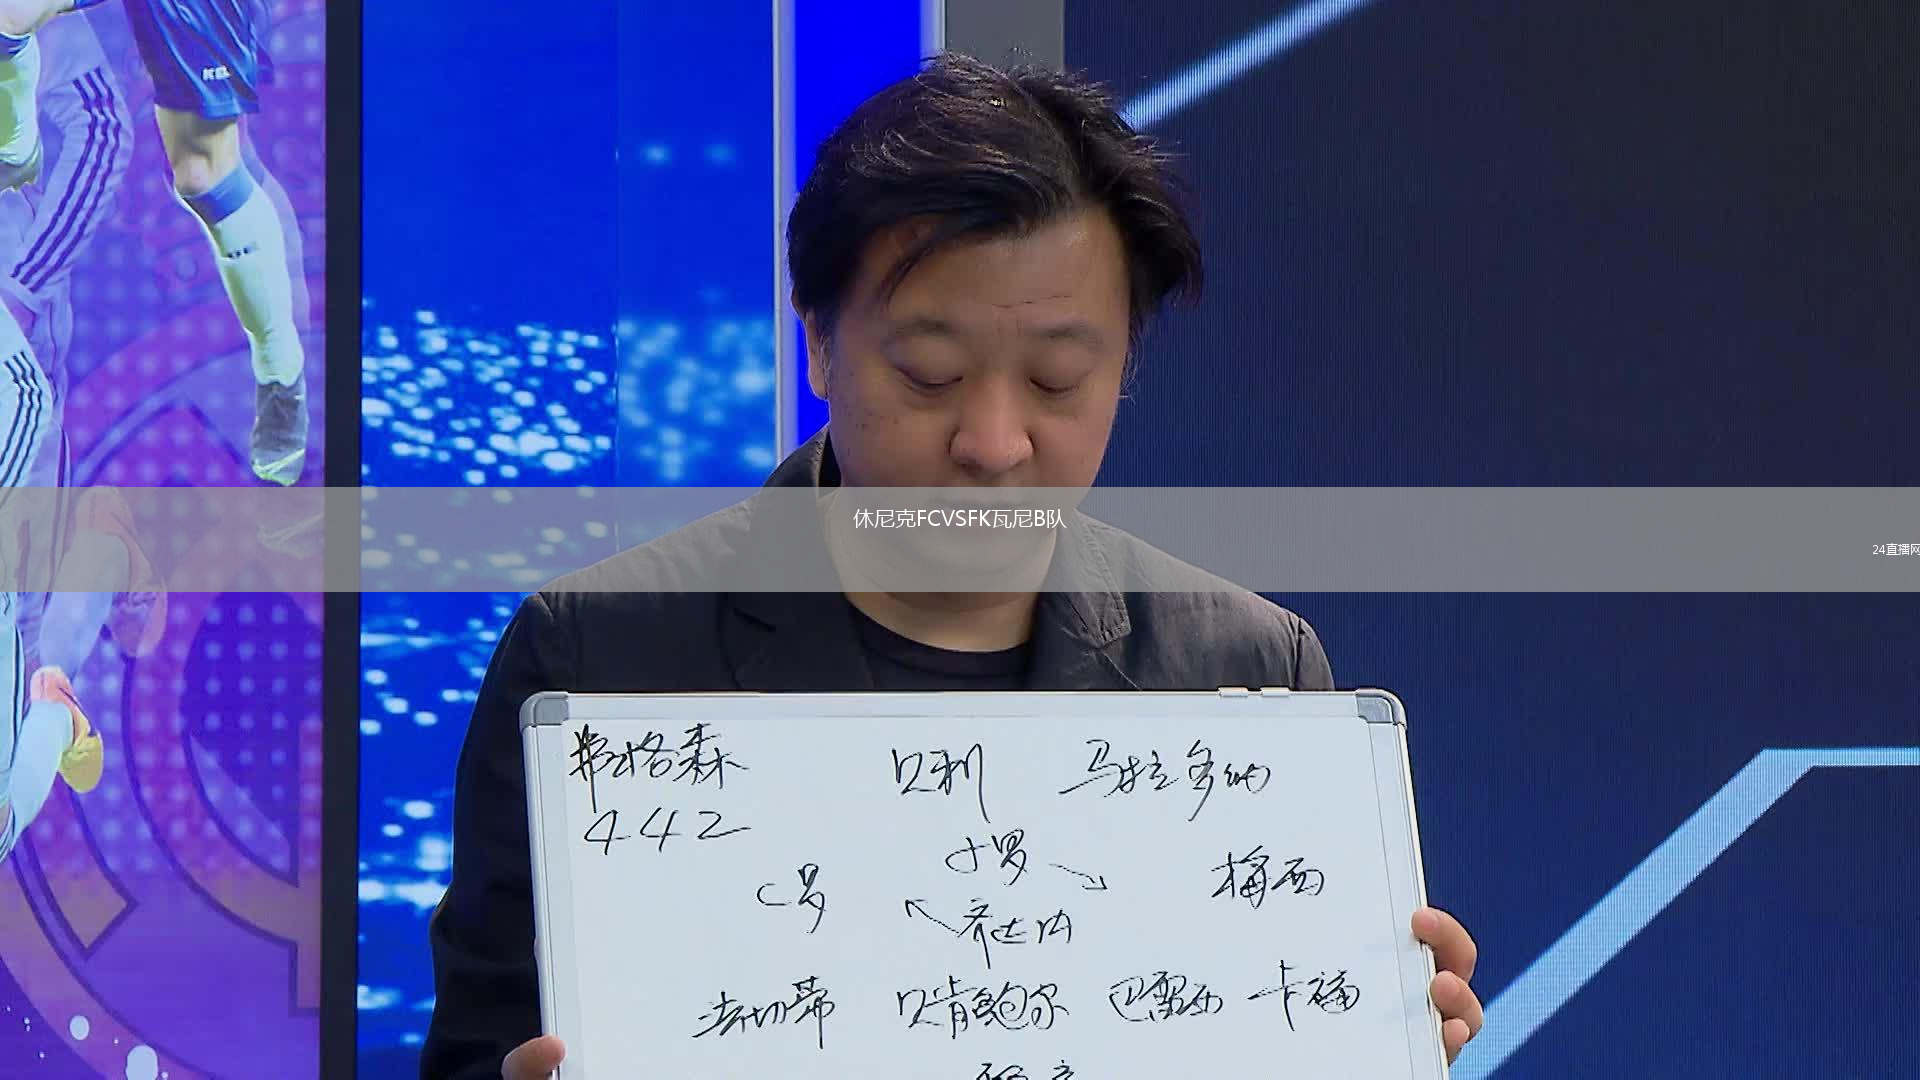 休尼克FCVSFK瓦尼B队
24直播网
弗格森 贝利 马拉多纳
442
小罗
C罗 梅西
齐达内
法切蒂 贝肯鲍尔 巴雷西 卡福